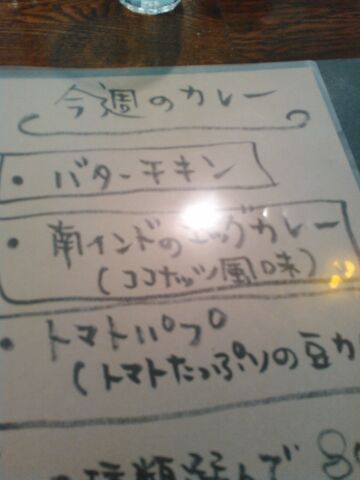 今週のカレー
・バターチキン
・南インドのエッグカレー
(ココナッツ風味)
・トマトパプ
(トマトたっぷりの豆カ
種類選んで